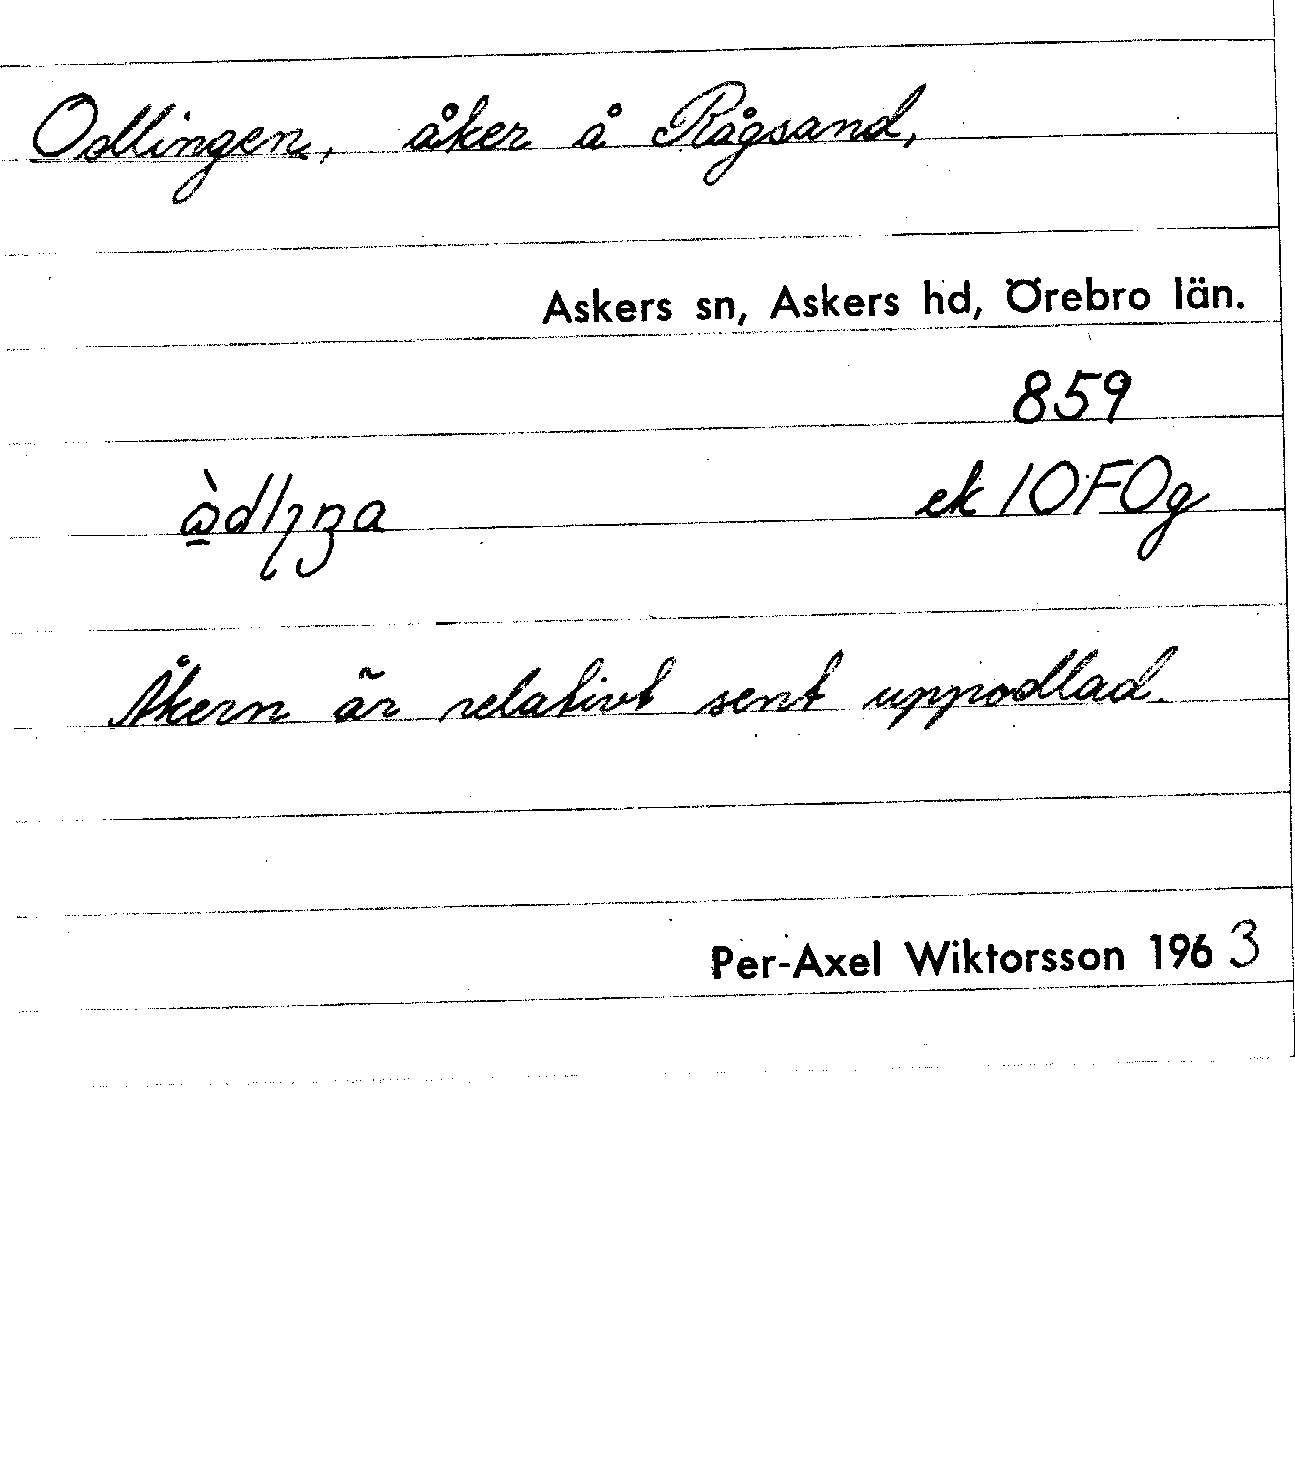 Odlingen, åker å Rågsand,
Askers sn, Askers hd, Örebro län.
859
ek 10F0g
Åkern är relativt sent uppodlad.
Per-Axel Wiktorsson 1963